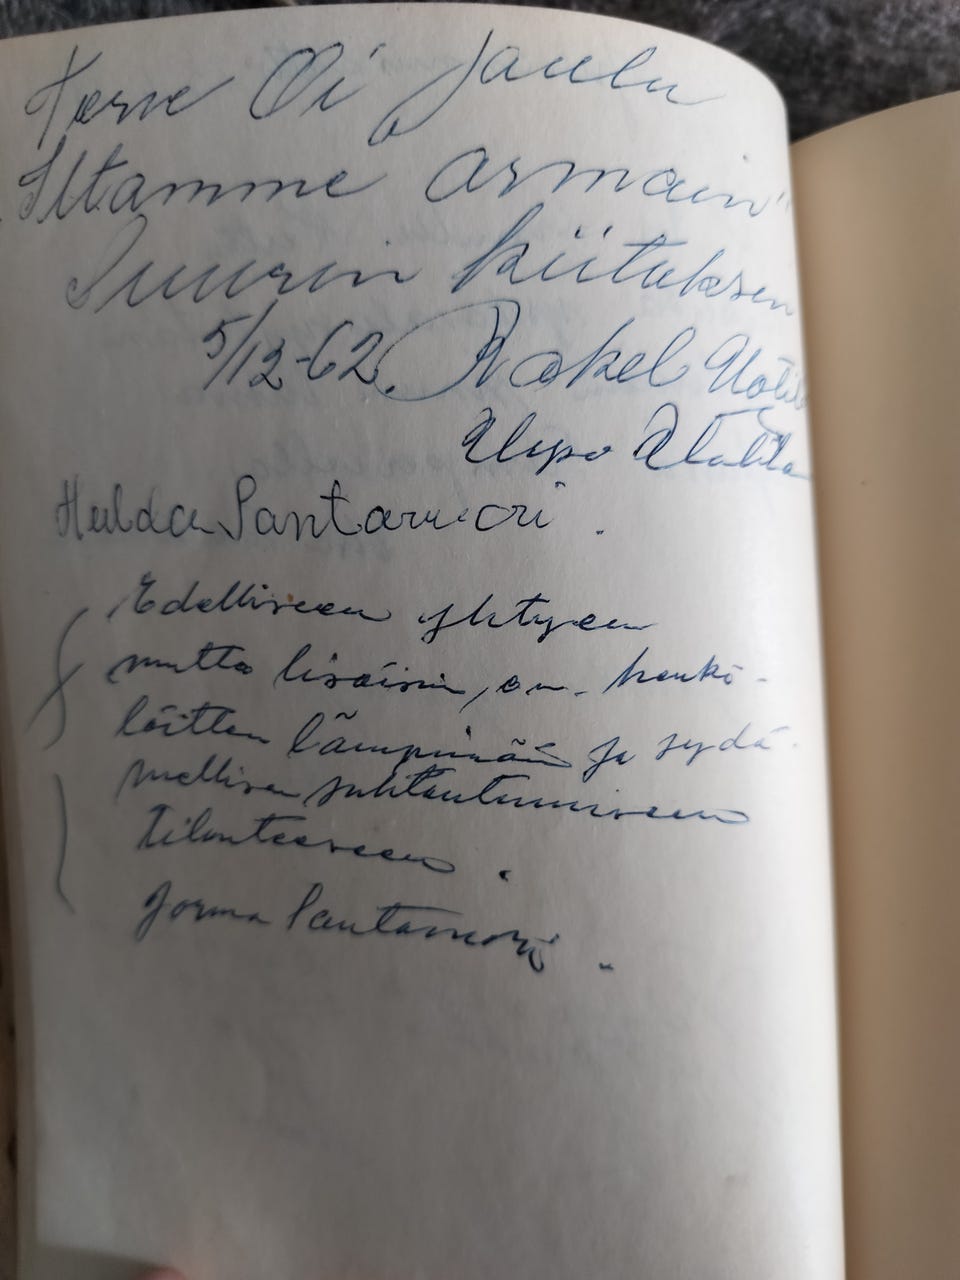 Terve Oi Joulu
Iltamme armain"
Suurin kiitoksin
5/12-62. Rakel
Urpo
Hulda Santavuori.
Edelliseen yhtyen
mutta lisäisin, henkö-
löitten lämpimään ja sydä-
mellisen suhtautumiseen
tilanteeseen.
Jorma Santavuori.